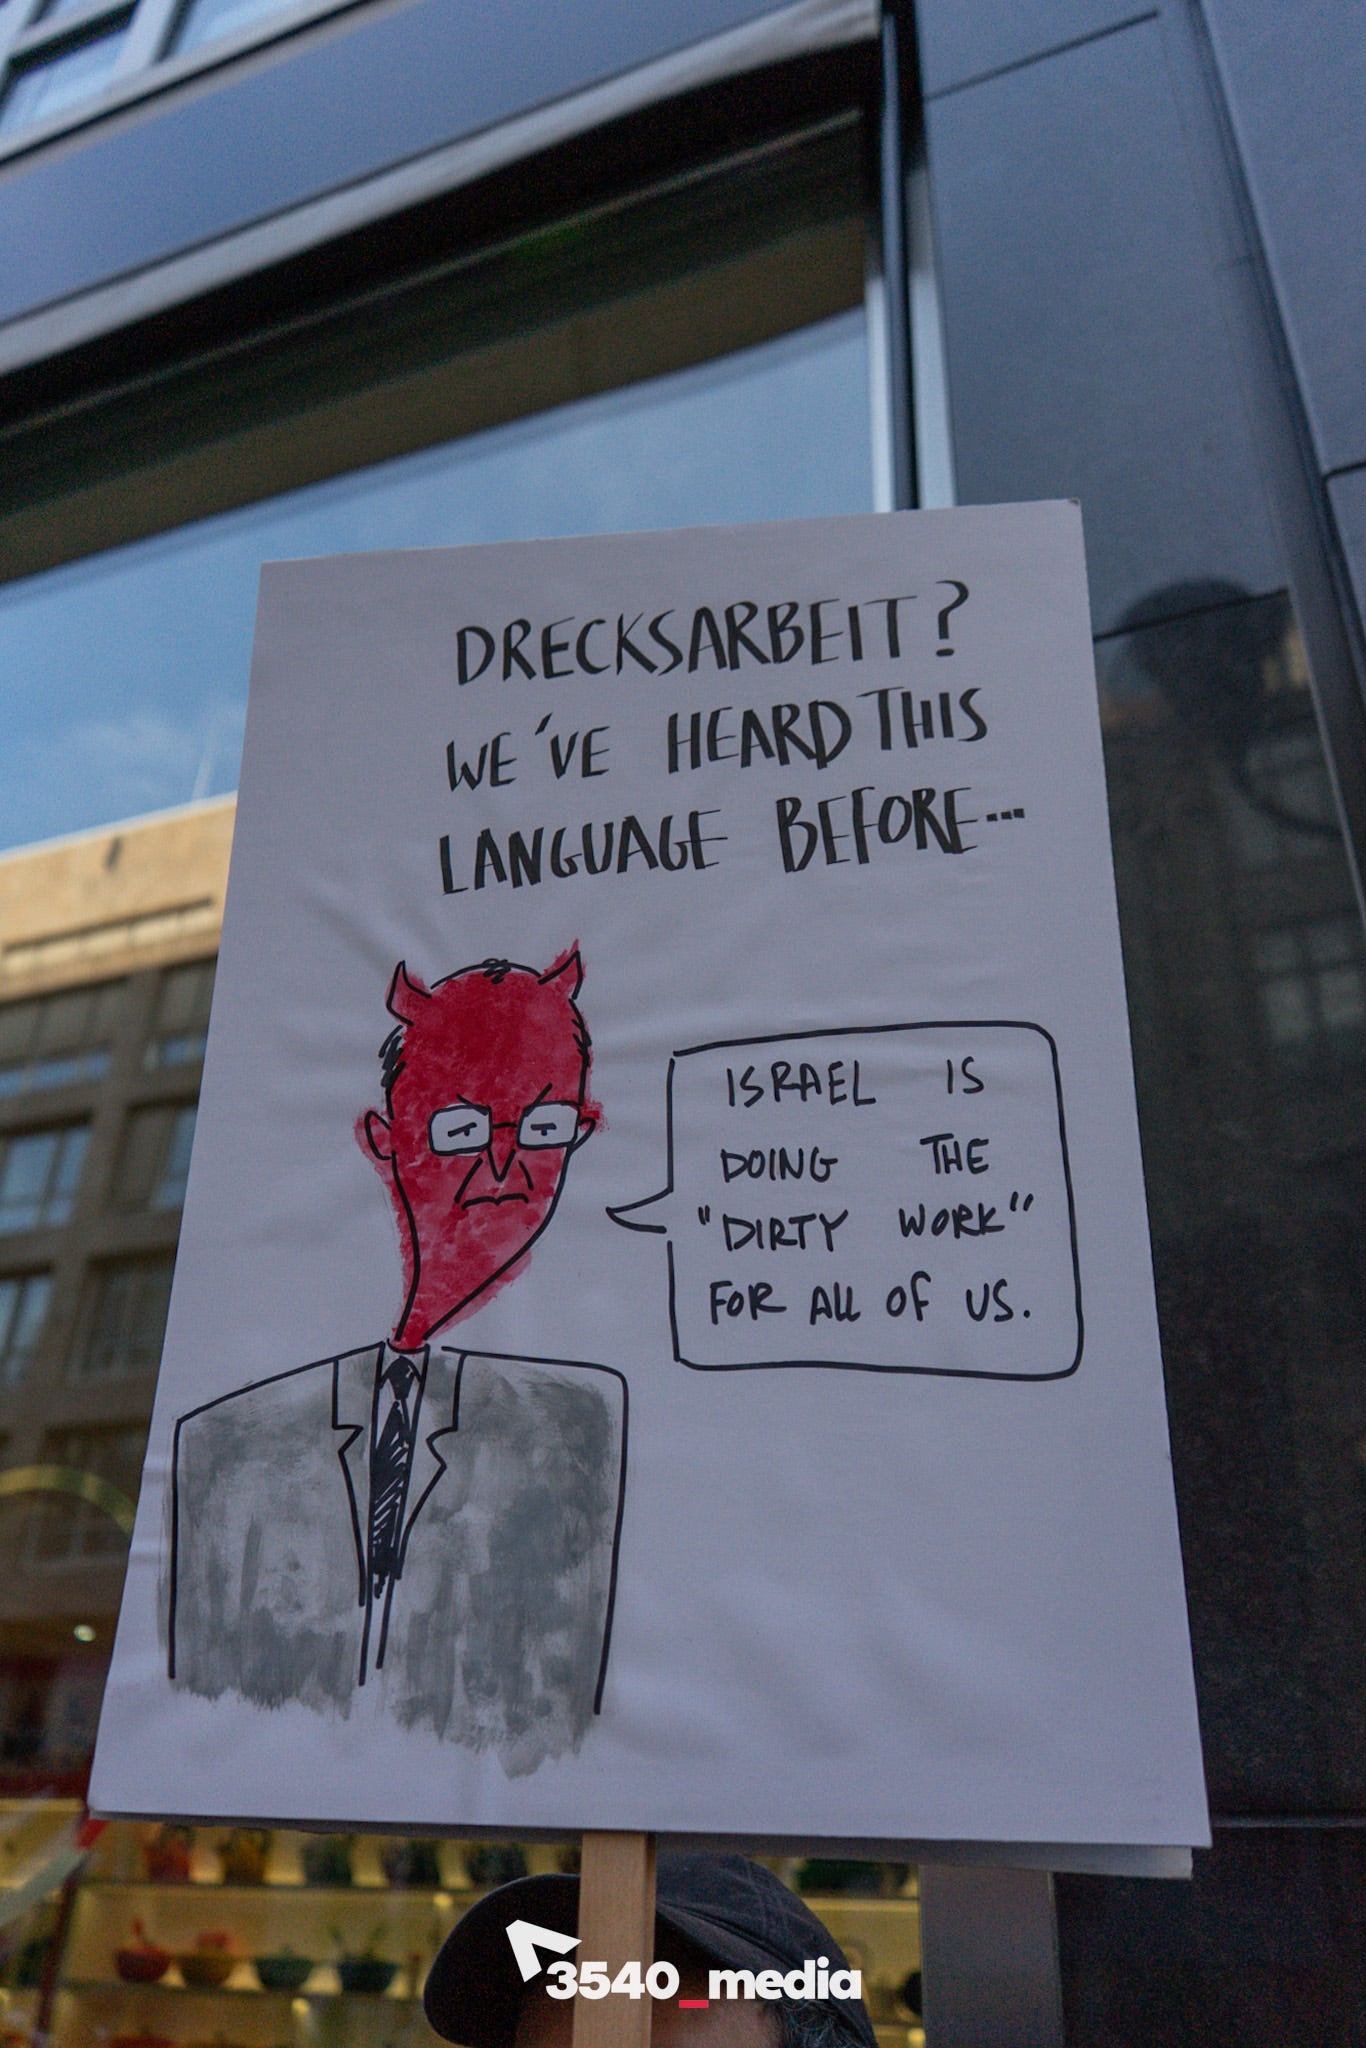 DRECKSARBEIT?
WE'VE HEARD THIS
LANGUAGE BEFORE...
ISRAEL IS
DOING THE
"DIRTY WORK"
FOR ALL OF US.
3540_media